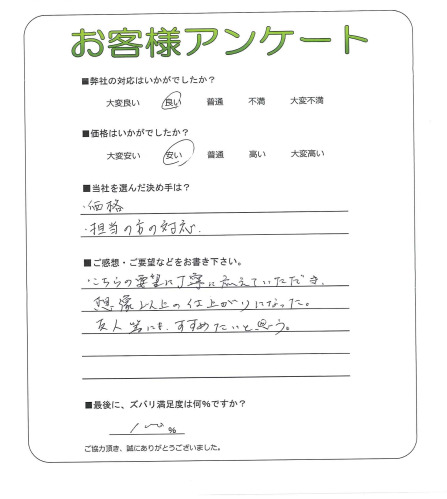 お客様アンケート
■弊社の対応はいかがでしたか？
大変良い 良い 普通 不満 大変不満
■価格はいかがでしたか？
大変安い 安い 普通 高い 大変高い
■当社を選んだ決め手は？
・価格
・担当の方の対応.
■ご感想・ご要望などをお書き下さい。
・こちらの要望に丁寧に応えていただき、
想像以上の仕上がりになった。
友人等にも、すすめたいと思う。
■最後に、ズバリ満足度は何%ですか？
100 %
ご協力頂き、誠にありがとうございました。